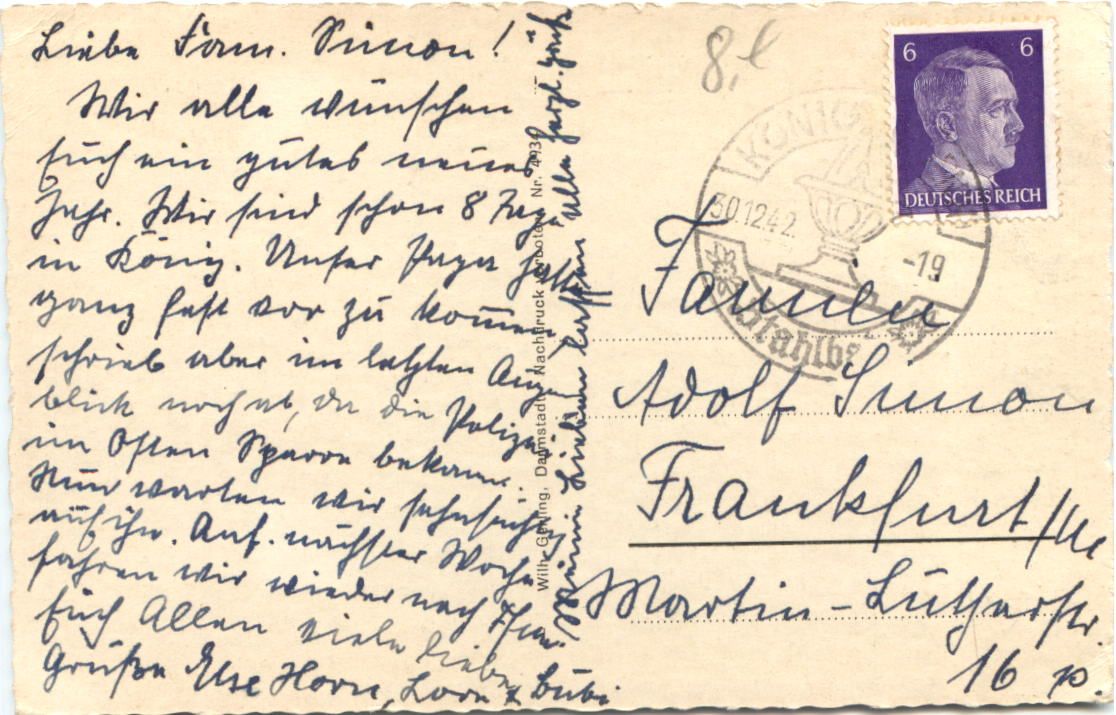 Liebe Fam. Simon!
Wir alle wünschen
Euch ein gutes neues
Jahr. Wir sind schon 8 Tage
in König. Unser Papa hatte
ganz fest vor zu kommen
schrieb aber im letzten Augen
blick noch ab, da die Polizei
im Osten Sperre bekam.
Nun warten wir sehnsüchtig
auf ihn. Anf. nächster Woche
fahren wir wieder nach
Euch Allen viele liebe
Grüße Else Horn, Lore & Bubi
Meine Lieben lassen alle herzl. grüßen
Wilh. Gerling, Darmstadt Nachdruck verboten Nr. 493
8,-
6 6
DEUTSCHES REICH
KÖNIG
30.12.42 -19
Stahlb
Familie
Adolf Simon
Frankfurt/M
Martin-Lutherstr.
16 p.